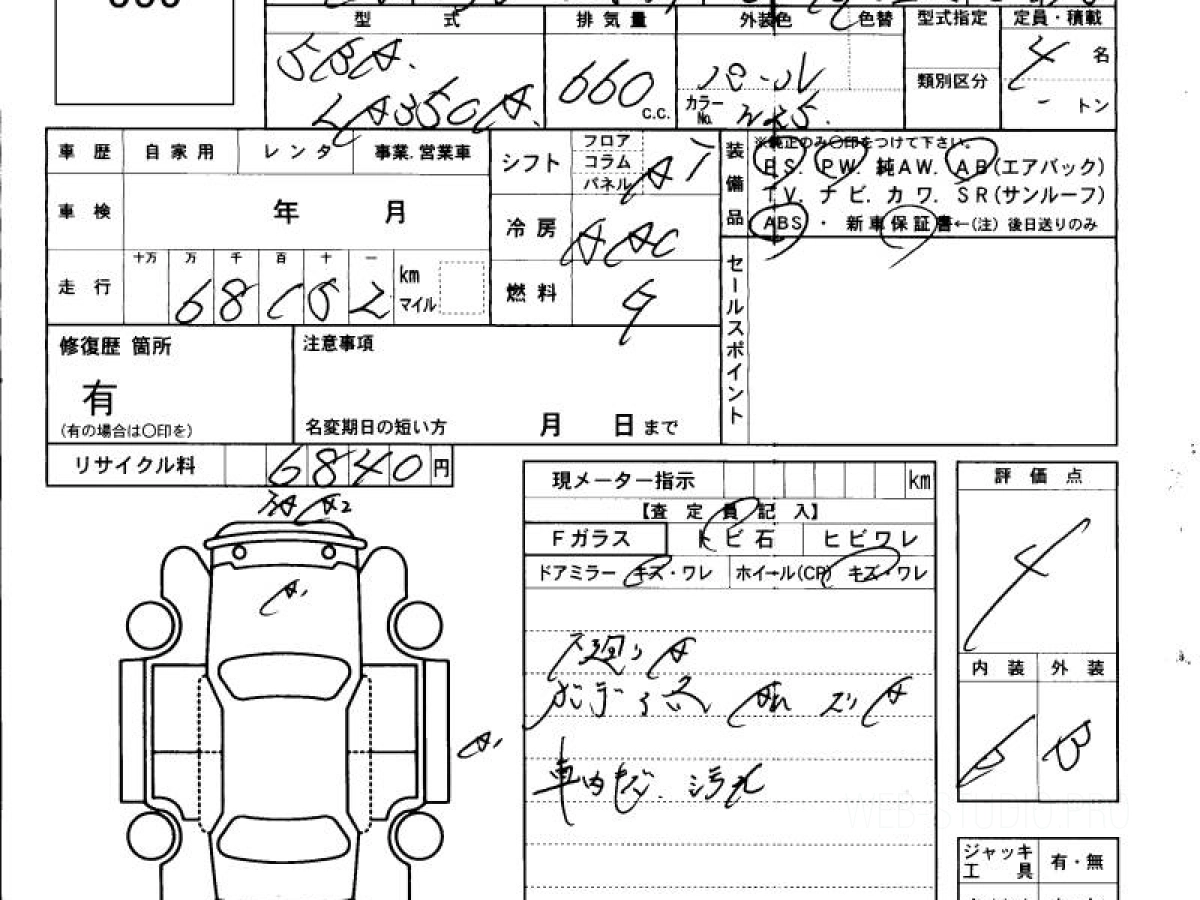 型 式 排気量 外装色 色替 型式指定 定員・積載
5BA. 660 パール 4 名
LA350A. c.c. カラーNo. W25. 類別区分 - トン
車歴 自家用 レンタ 事業.営業車 シフト フロア AT 装備品 ※純正のみ〇印をつけて下さい。
コラム PS. PW. 純AW. AB(エアバック)
パネル TV. ナビ. カワ. SR(サンルーフ)
車検 年 月 冷房 AAC ABS・ 新車保証書←(注) 後日送りのみ
十万 万 千 百 十 一
走行 68152 km 燃料 G セールスポイント
マイル
修復歴 箇所 注意事項
有
(有の場合は〇印を) 名変期日の短い方 月 日まで
リサイクル料 6840 円
現メーター指示 km 評価点
A2
【査定員記入】 4
Fガラス トビ石 ヒビワレ
ドアミラー キズ・ワレ ホイール(CP) キズ・ワレ
A1
内装 外装
B B
ボディ
A1
車内 汚れ
WEB-STUDIO.PRO
ジャッキ 有・無
工具